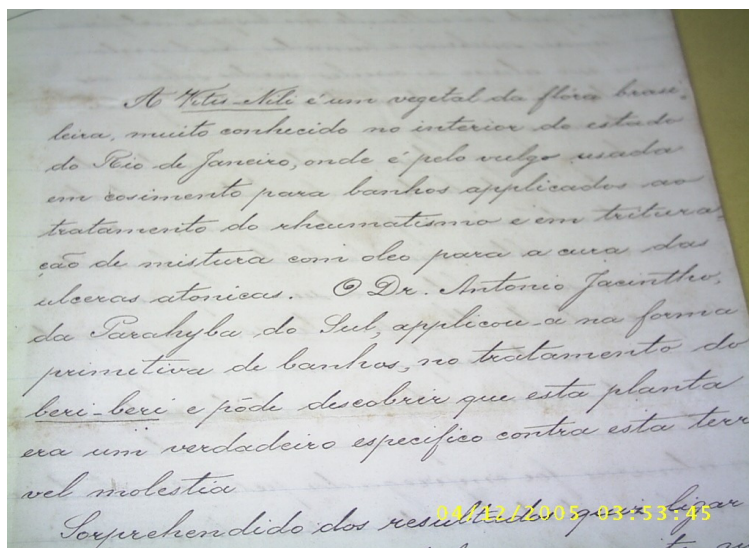 A Vitis-Nili é um vegetal da flora brasi-
leira, muito conhecido no interior do estado
do Rio de Janeiro, onde é pelo vulgo usada
em cosimento para banhos applicados ao
tratamento do rheumatismo e em tritura-
ção de mistura com oleo para a cura das
ulceras atonicas. O Dr. Antonio Jacintho,
da Parahyba do Sul, applicou-a na forma
primitiva de banhos, no tratamento do
beri-beri e pôde descobrir que esta planta
era um verdadeiro especifico contra esta terr
vel molestia
Sorprehendido dos resultados quiz ligar
04/12/2005 03:53:45